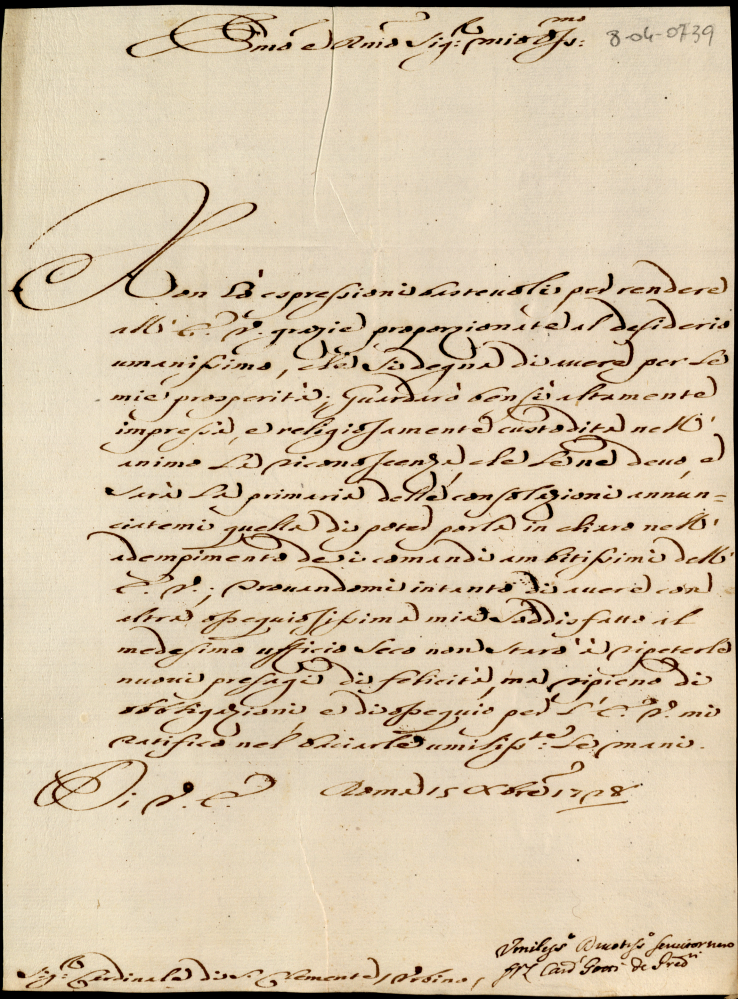 Emo e Rmo Sig:r mio Oss:mo
8-04-0739
Non hò espressioni bastevoli per rendere
all' E. V. grazie proporzionate al desiderio
umanissimo, che si degna di avere per le
mie prosperità; Guardarò bensì altamente
impressa, e religiosamente custodita nell'
animo la riconoscenza che le ne devo, e
sarà la primaria delle consolazioni annun=
ciatemi quella di poter porla in chiaro nell'
adempimento de i comandi ambitissimi dell'
E. V.; Provandomi intanto di avere con
altra ossequiosissima mia soddisfatto al
medesimo ufficio seco non starò à ripeterle
nuovi presagi di felicità, ma ripieno di
obbligazioni e di ossequio per l' E. V. mi
ratifico nel baciarle umiliss:te le mani.
Di V. E. Roma 15 Xbre 1728
Umiliss:o Devotiss:o servitor vero
Sig:r Cardinale di S. Clemente / Urbino /
Card